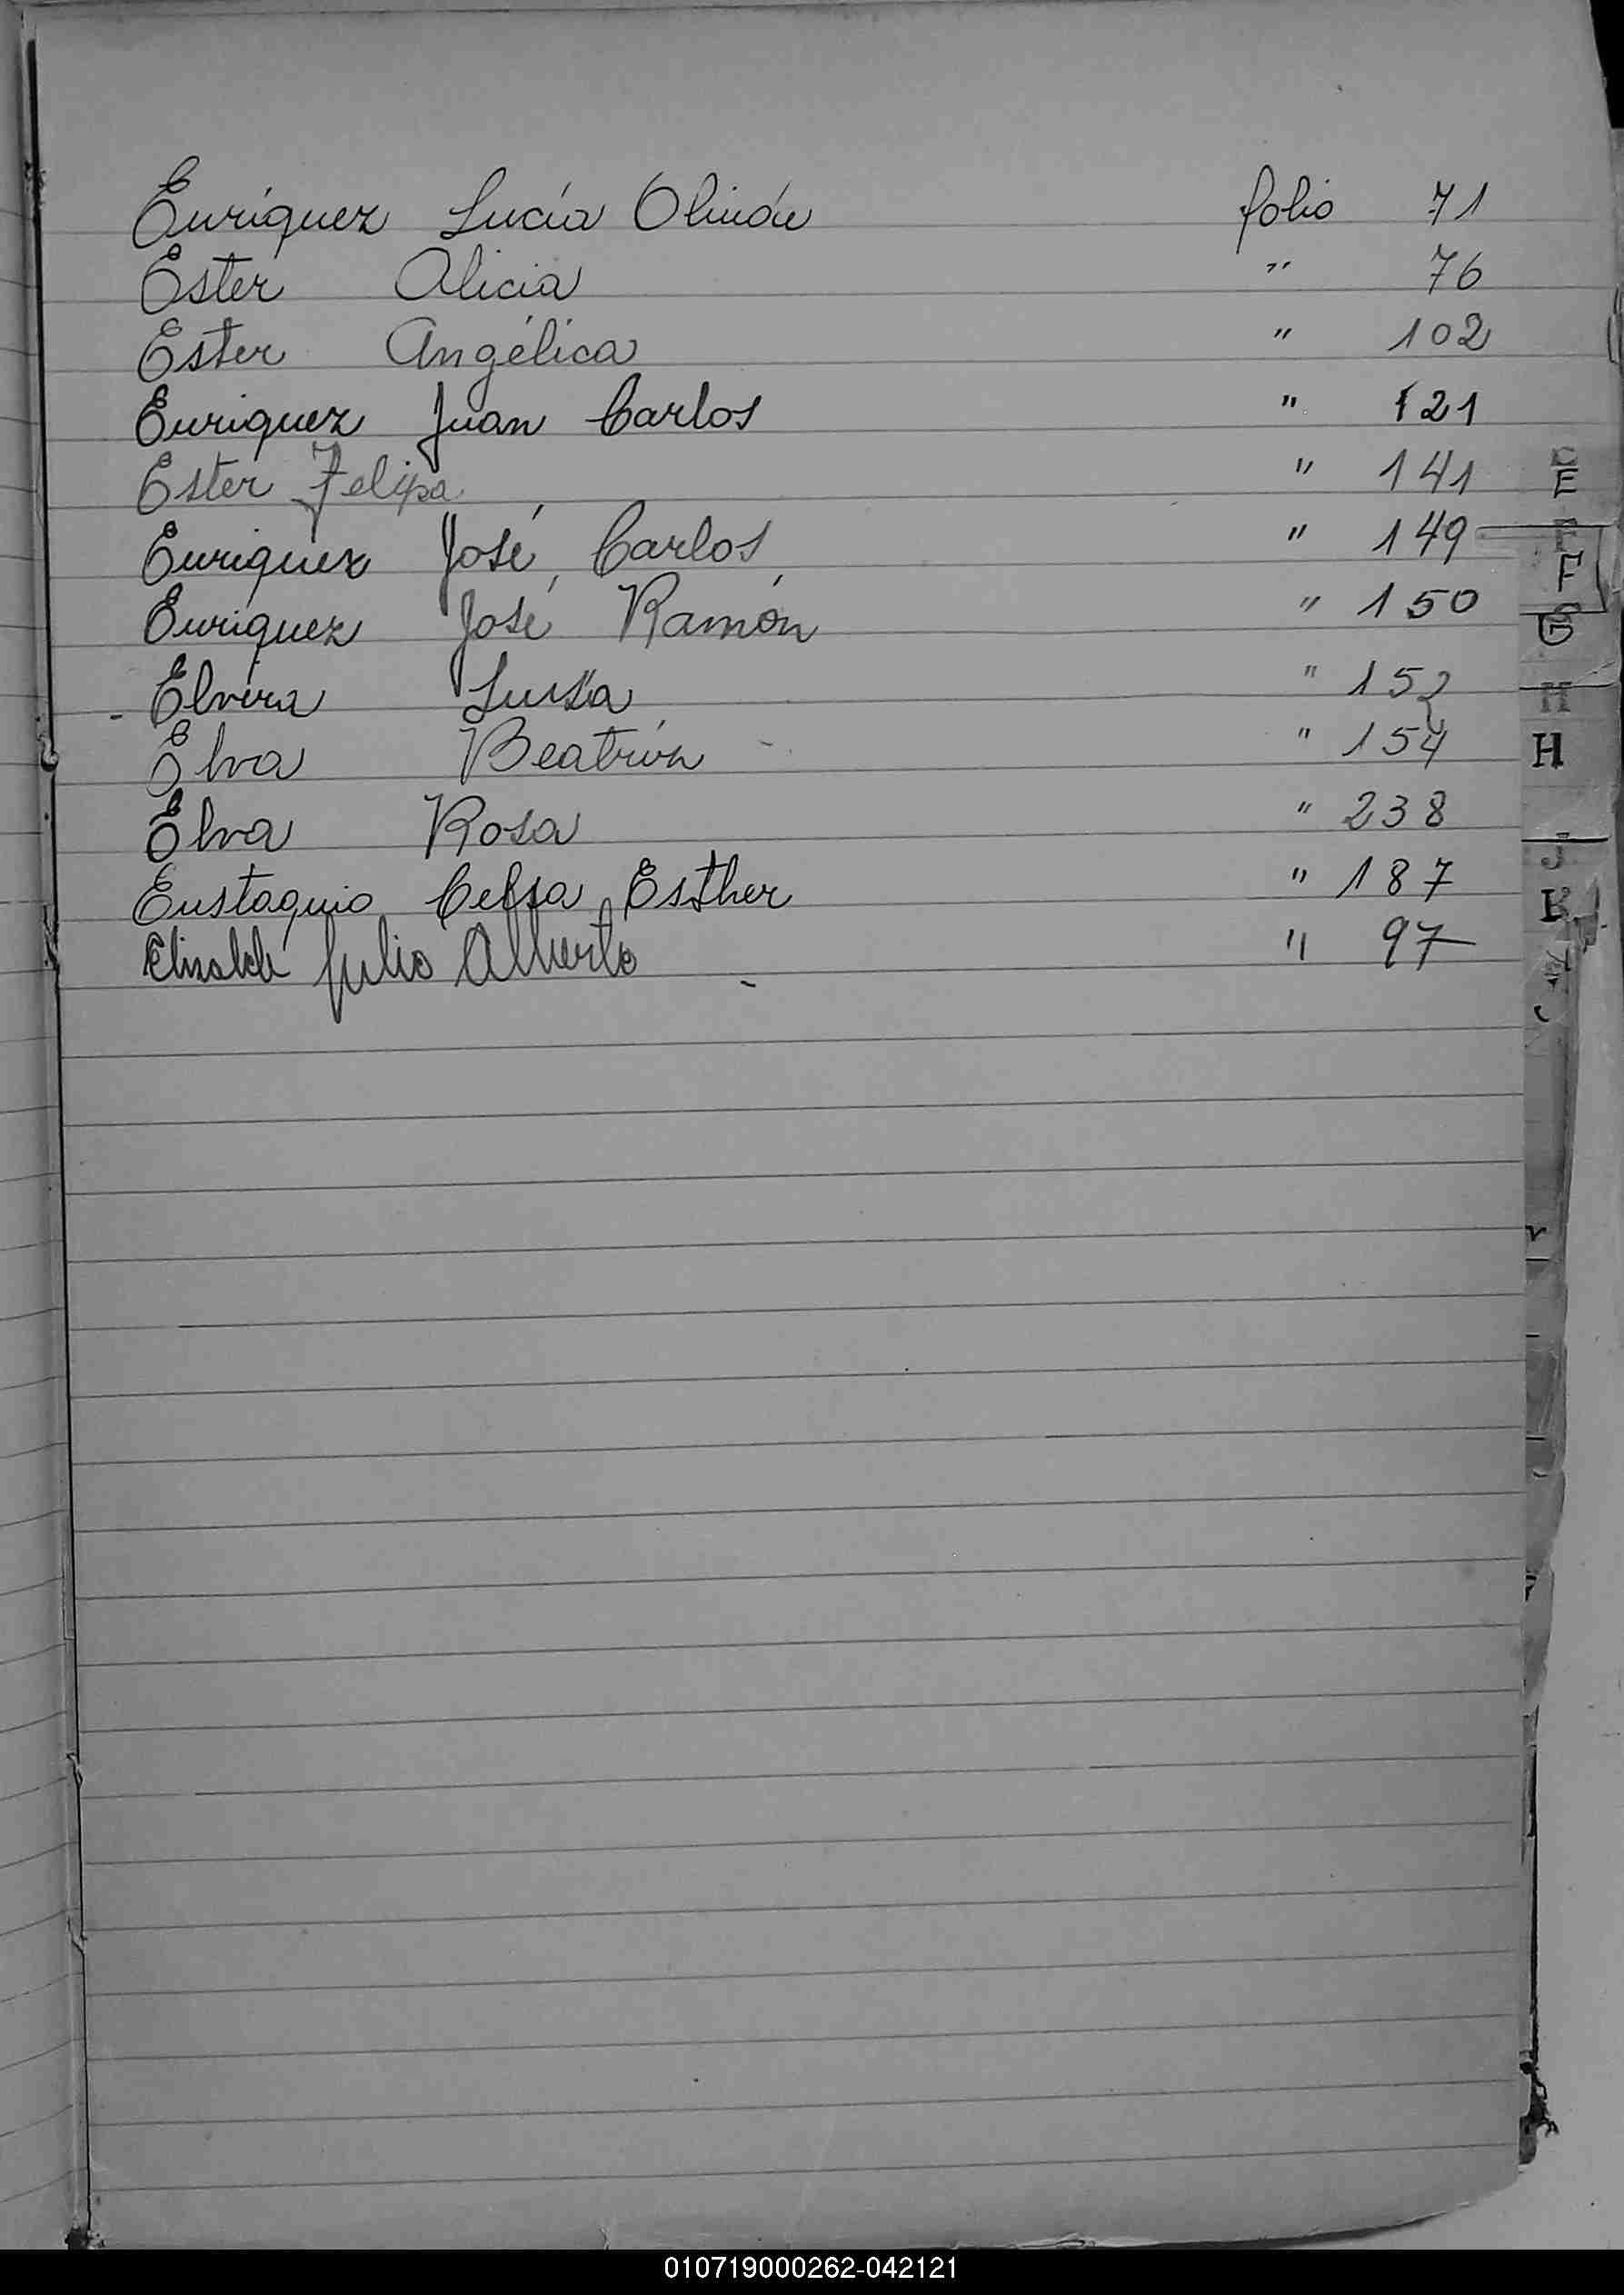 Enriquez Lucía Olinda folio 71
Ester Alicia " 76
Ester Angélica " 102
Enriquez Juan Carlos " 121
Ester Felipa " 141
Enriquez José Carlos " 149
Enriquez José Ramón " 150
Elvira Luisa " 152
Elva Beatriz " 154
Elva Rosa " 238
Eustaquio Celsa Esther " 187
Elizalde Julio Alberto " 97
E
F
G
H
H
J
K
010719000262-042121